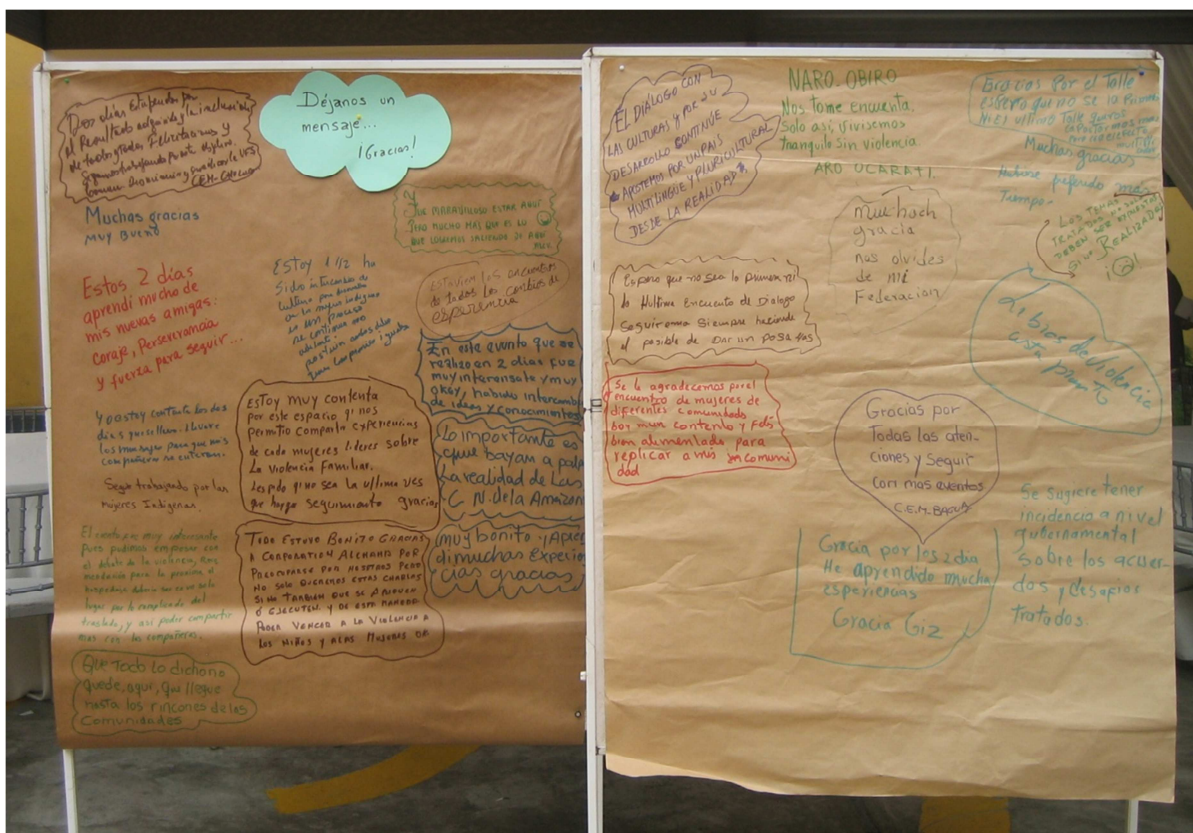 Dos días estupendos por
el Resultado adquirido y la inclusión
de todos y todas. Felicitaciones y
Sigamos trabajando por este objetivo
Común
C.E.M-
Déjanos un
mensaje...
¡Gracias!
Muchas gracias
MUY BUENO
Fue MARAVILLOSO ESTAR AQUÍ
PERO MUCHO MAS QUE ES LO
QUE LOGREMOS SALIENDO DE AQUÍ
Estos 2 días
aprendí mucho de
mis nuevas amigas:
coraje, Perseverancia
y fuerza para seguir...
ESTOY
Sido
de todos los
experiencia
En este evento que se
realizo en 2 dias fue
muy interensate y muy
okey, habido intercambio
de ideas y conocimientos
Yo estoy contenta los dos
días
los mensajes para que mis
compañeras se enteran.
Seguir trabajando por las
mujeres Indígenas.
ESTOY muy contenta
por este espacio q' nos
permitio comparta experiencias
de cada mujeres lideres sobre
La violencia Familiar.
Les pido q' no sea la ultima ves
se haga seguimiento gracias
Lo importante es
que bayan a
la realidad de Las
C N. de la Amazon
El evento fue muy interesante
Pues pudimos empezar con
el debate de la violencia,
mendación para la proxima el
hospedaje debería ser en un solo
lugar por lo complicado del
traslado, y así poder compartir
mas con las compañeras.
TODO ESTUVO BONITO GRACIAS
A CORPORATION ALEMANA POR
PREOCUPARSE POR NOSOTROS PERO
NO SOLO QUEREMOS ESTAS CHARLAS
SINO TAMBIEN QUE SE APLIQUEN
O EJECUTEN. Y DE ESTA MANERA
PODER VENCER A LA VIOLENCIA A
LOS NIÑOS Y A LAS MUJERES DE
muy bonito ¡Apren
di muchas experien
cias gracias
Que Todo lo dicho no
quede, aquí, que llegue
hasta los rincones de las
Comunidades
EL DIÁLOGO CON
LAS CULTURAS Y POR SU
DESARROLLO CONTINÚE
APOSTEMOS POR UN PAIS
MULTILINGUE Y PLURICULTURAL
DESDE LA REALIDAD
NARO. OBIRO
Nos tome encuenta.
Solo asi, vivisemos
tranquilo sin violencia.
ARO UCARATI.
Gracias Por el Talle
espero que no se la Primera
Ni El ultimo Talle
Muchas gracias
Hubiese preferido más
Tiempo
LOS TEMAS
TRATADOS NO SOLO
DEBEN SER EXPUESTOS
SINO REALIZADOS
muchach
gracia
nos olvides
de mi
Federación
Espero que no sea lo primera ni
lo Hultimo Encuento de Dialogo
Seguiremos Siempre haciendo
el posible de Dar un POSA MAS
Libres de violencia
Se le agradecemos por el
encuentro de mujeres de
diferentes comunidades
boy muy contento y Feliz
bien alimentado para
replicar a mis comuni
dad
Gracias por
Todas las aten-
ciones y Seguir
con mas eventos
C.E.M-BAGUA
Gracia por los 2 dia
He aprendido mucha
experiencias
Gracia Giz
Se sugiere tener
incidencia a nivel
gubernamental
sobre los acuer-
dos y desafios
tratados.